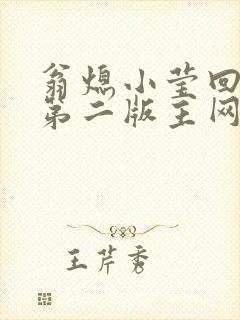 翁熄小莹回
第二版主网
王芹秀